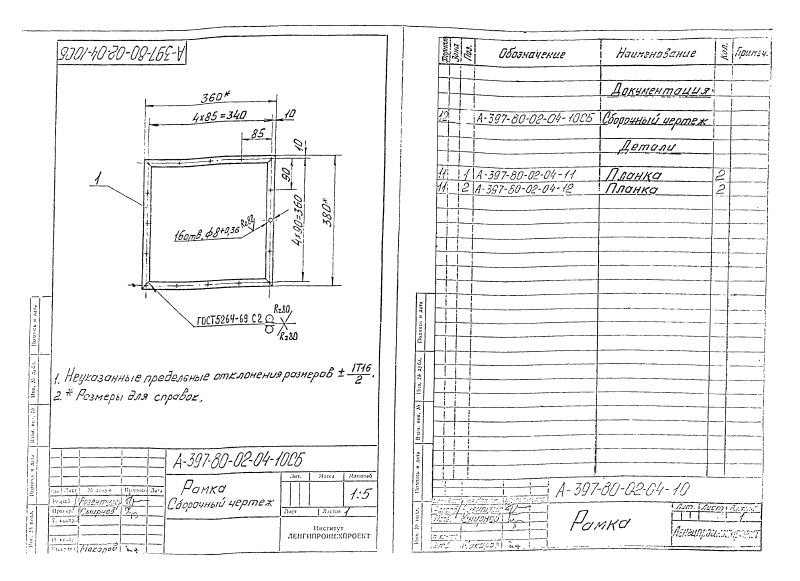 А-397-80-02-04-10СБ
360*
4х85=340
10
85
10
90
4х90=360
380*
1
16отв. ф8+0,36 Rz80
ГОСТ5264-69 С2
Rz80
Rz80
1. Неуказанные предельные отклонения размеров ± IT16/2.
2.* Размеры для справок.
А-397-80-02-04-10СБ
Рамка
Сборочный чертеж
Лит. Масса Масштаб
1:5
Лист Листов 1
Институт
ЛЕНГИПРОИНЖПРОЕКТ
Лист № докум Подпись Дата
Разраб.
Провер. Смирнов
Т. контр.
Н. контр.
Макаров
Подпись и дата
Инв. № дубл.
Взам. инв. №
Подпись и дата
Инв. № подл.
Формат Зона Поз. Обозначение Наименование Кол. Примеч.
Документация
12 А-397-80-02-04-10СБ Сборочный чертеж
Детали
11 1 А-397-80-02-04-11 Планка 2
11 2 А-397-80-02-04-12 Планка 2
Подпись и дата
Инв. № дубл.
Взам. инв. №
Подпись и дата
Инв. № подл.
А-397-80-02-04-10
Рамка
Лит. Лист Листов
1
Смирнов
Макаров